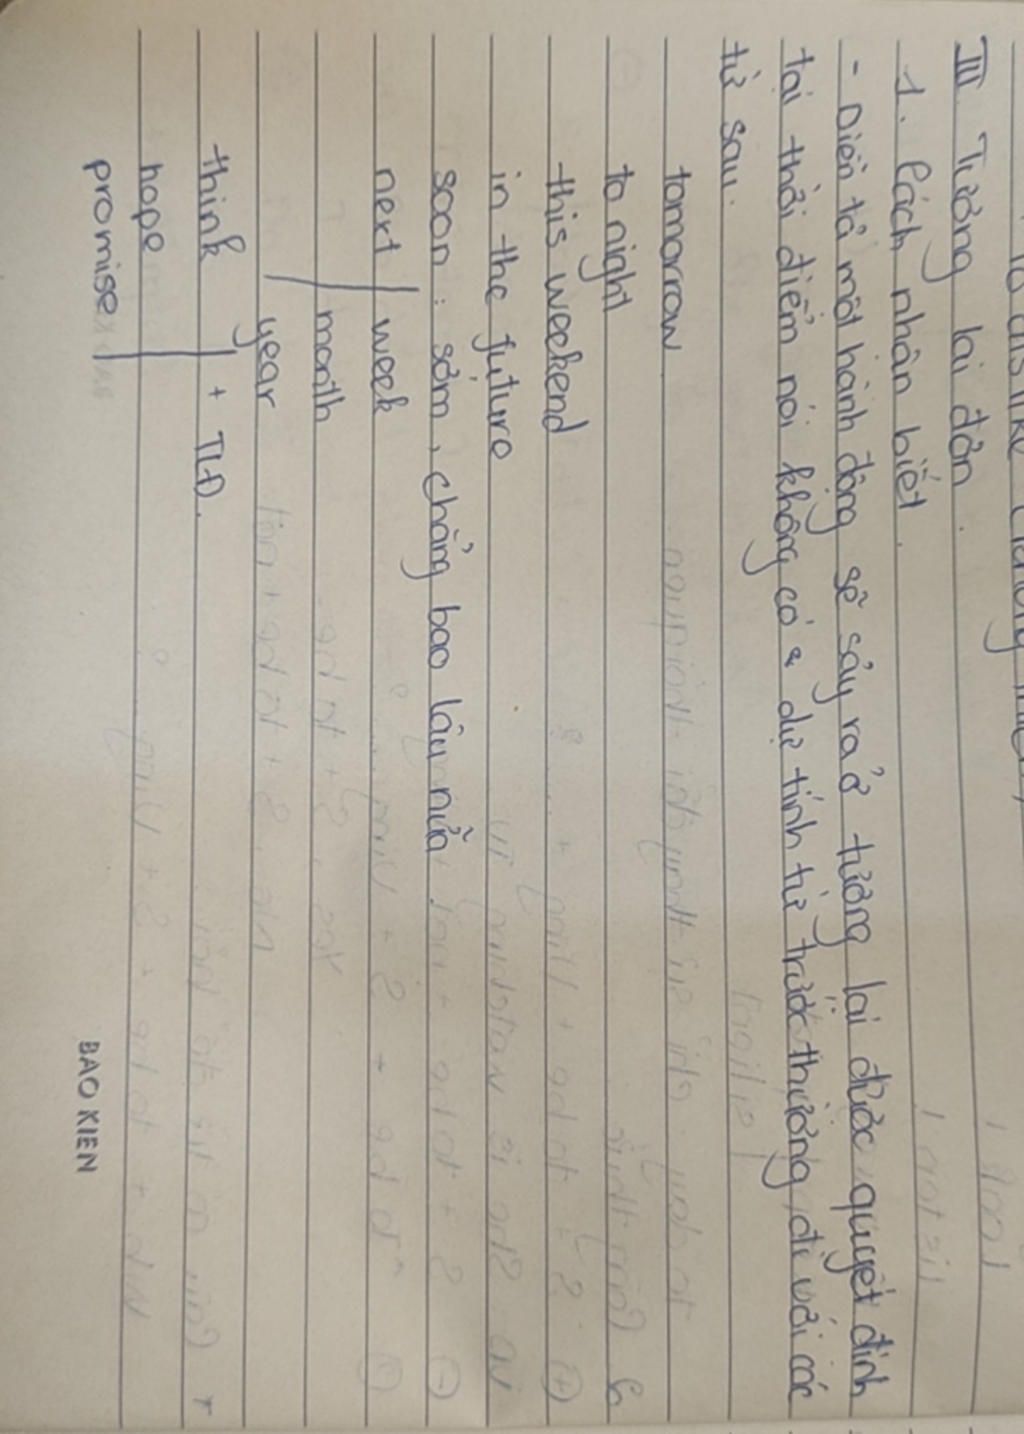 to dislike
III Tương lai đơn.
1. Cách nhận biết.
- Diễn tả một hành động sẽ sảy ra ở tương lai được quyết định
tại thời điểm nói không có dự tính từ trước thường đi với các
từ sau.
tomorrow.
to night
this weekend
in the future
soon: sớm, chẳng bao lâu nữa
next week
month
year
think + TLĐ.
hope
promise
BAO KIEN